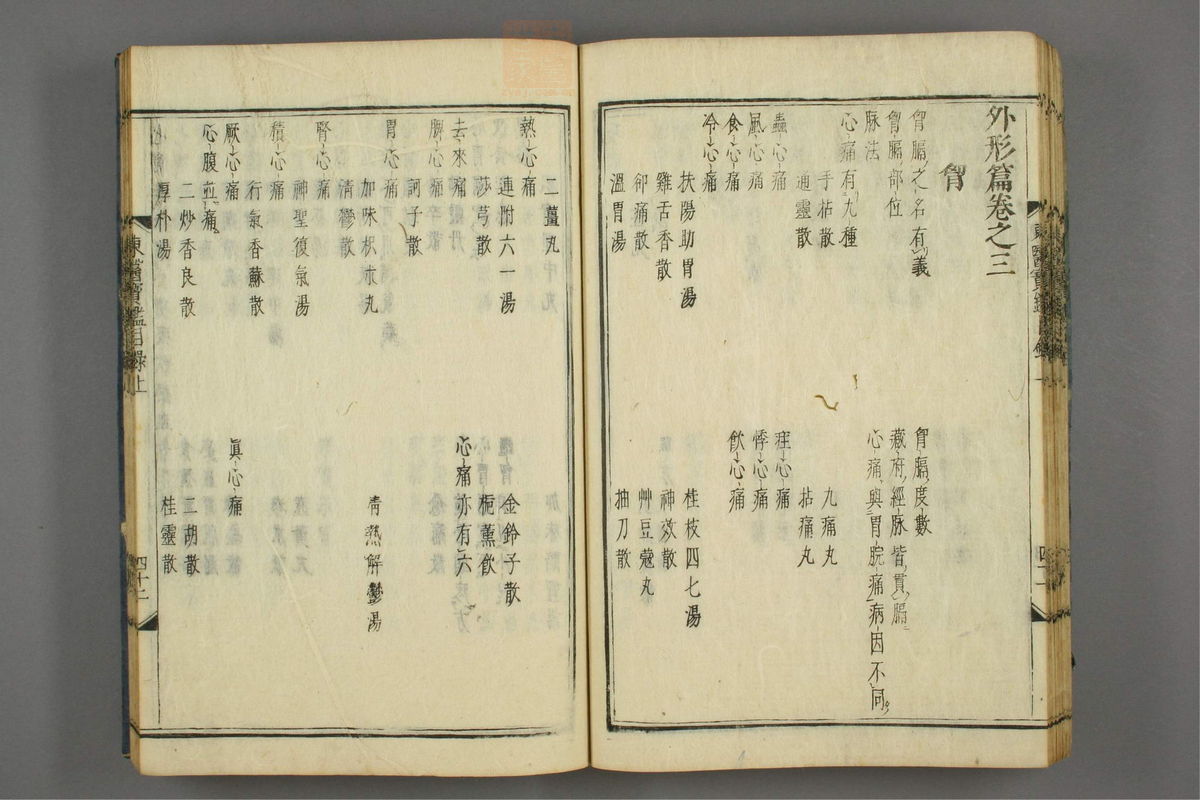 外形篇卷之三
胷
胷膈之名有義
胷膈度數
胷膈部位
藏府經脉皆貫膈
脉法
心痛與胃脘痛病因不同
心痛有九種
手拈散
九痛丸
通靈散
拈痛丸
蟲心痛
疰心痛
風心痛
悸心痛
食心痛
飲心痛
冷心痛
扶陽助胃湯
桂枝四七湯
雞舌香散
神效散
却痛散
艸豆蔻丸
溫胃湯
抽刀散
熱心痛
二薑丸
金鈴子散
連附六一湯
梔薰飲
莎芎散
去來痛
心痛亦有六
脾心痛
訶子散
胃心痛
加味枳朮丸
清熱解鬱湯
清鬱散
腎心痛
神聖復氣湯
積心痛
行氣香蘇散
厥心痛
眞心痛
二炒香良散
二胡散
心腹並痛
厚朴湯
桂靈散
東醫寶鑑目錄上
四十二